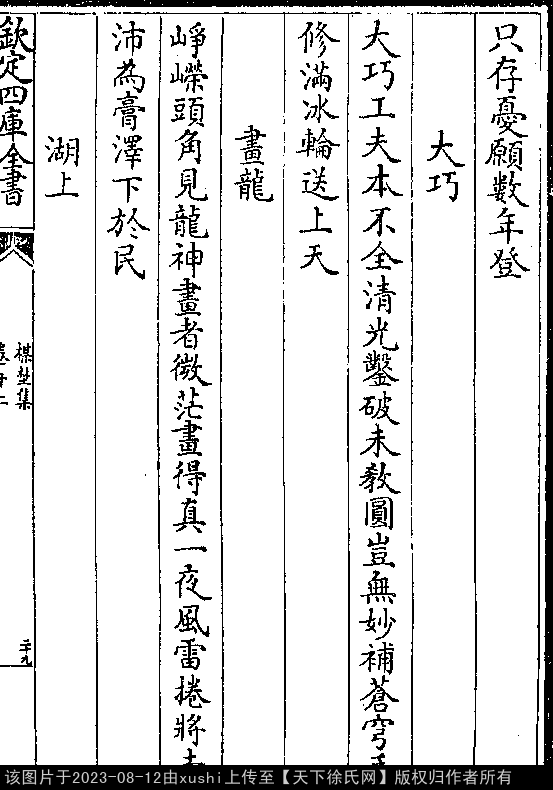 只存憂願數年登
大巧
大巧工夫本不全清光鑿破未教圓豈無妙補蒼穹手
修滿冰輪送上天
畫龍
崢嶸頭角見龍神畫者微茫畫得真一夜風雷捲將去
沛為膏澤下於民
湖上
欽定四庫全書
楳埜集
卷十二
二十九
该图片于2023-08-12由xushi上传至【天下徐氏网】版权归作者所有